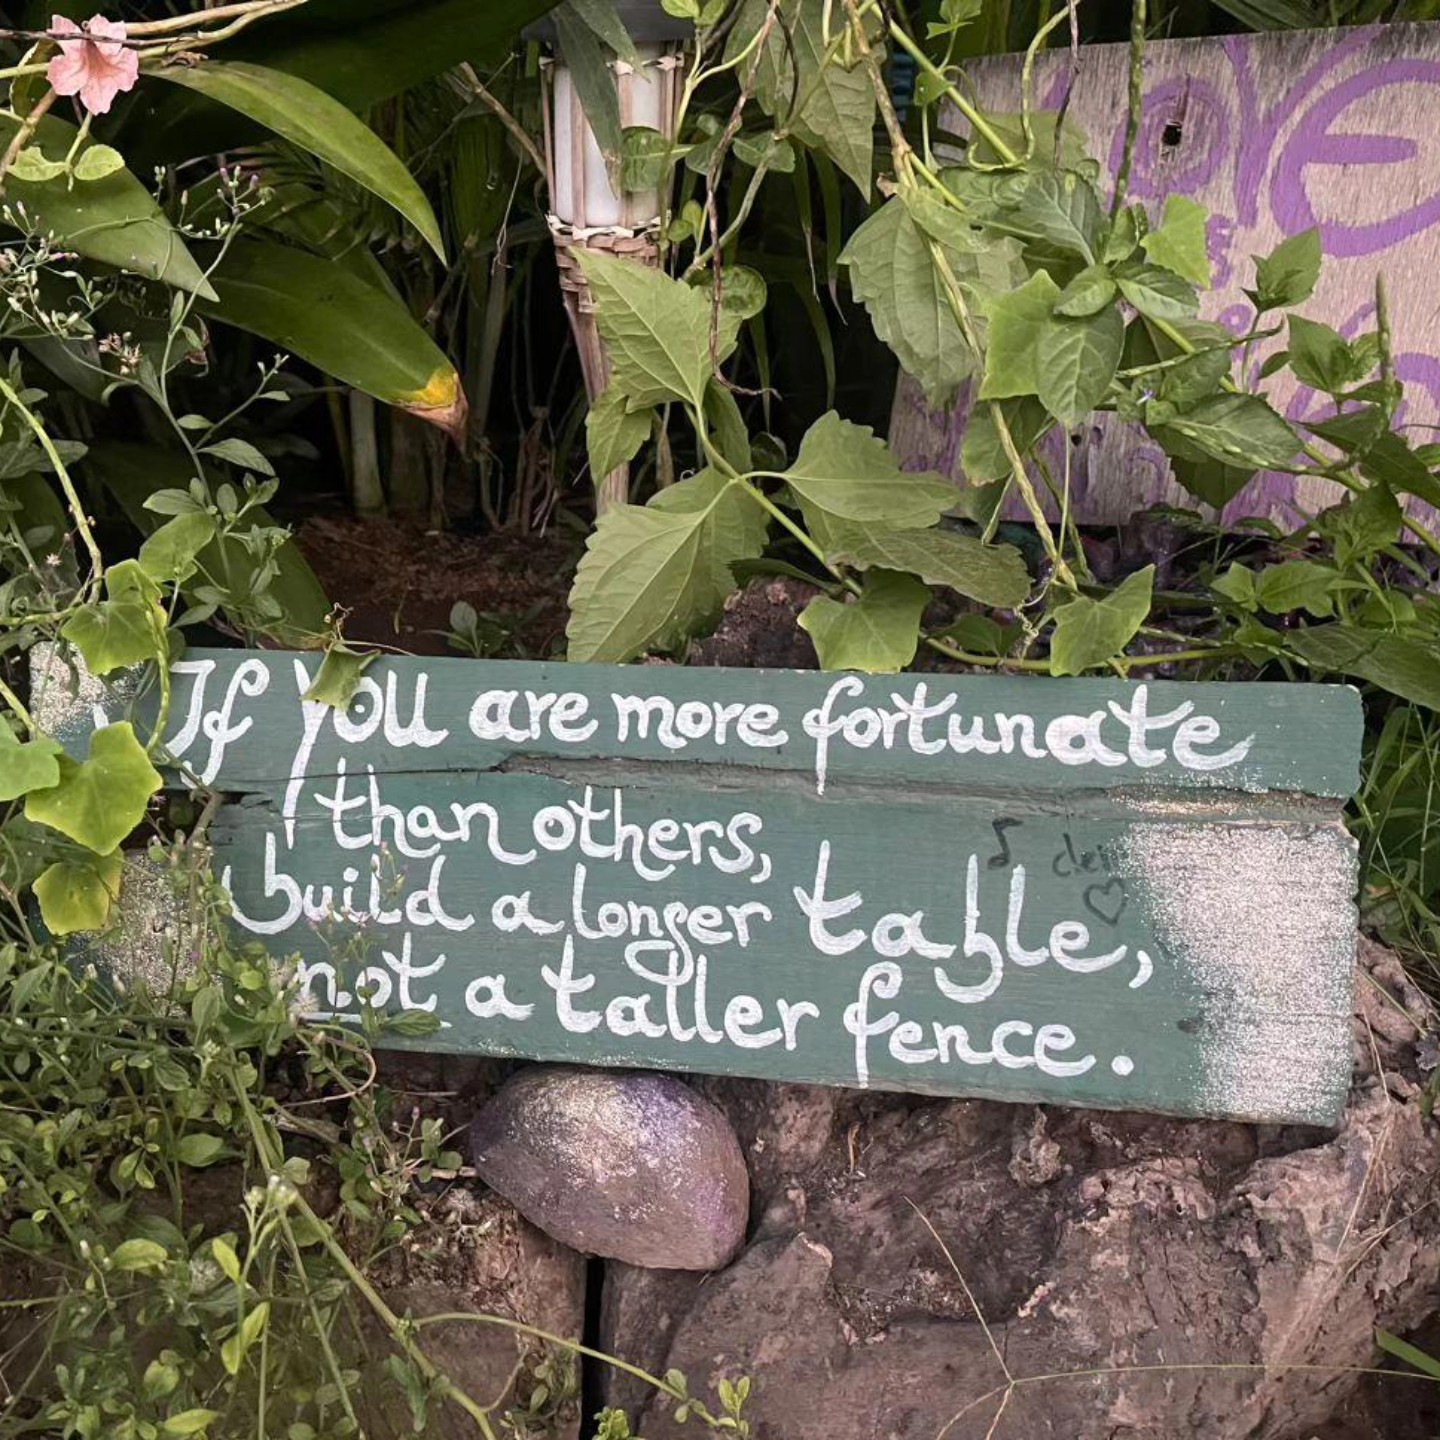 LOVE
If you are more fortunate
than others,
build a longer table,
not a taller fence.